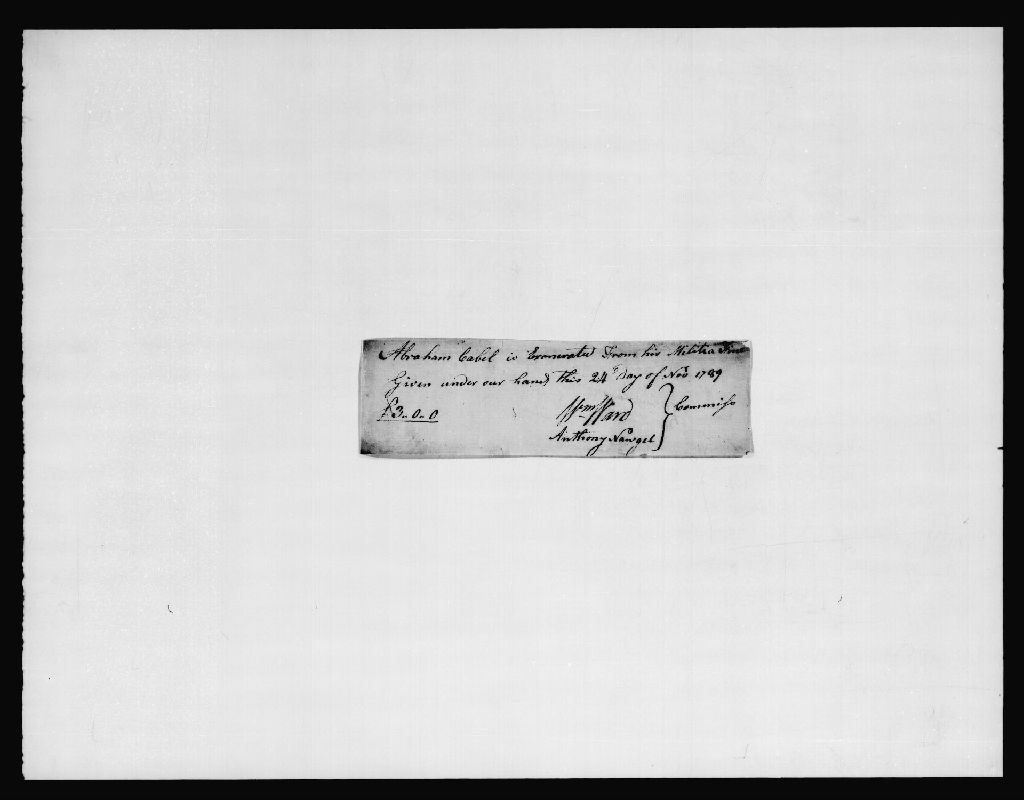 Abraham Cabel is Exonerated From his Militia Fine
Given under our hands this 24th Day of Novr 1789
£3"0"0
Wm Ward
Anthony Nawgel
} Commisso